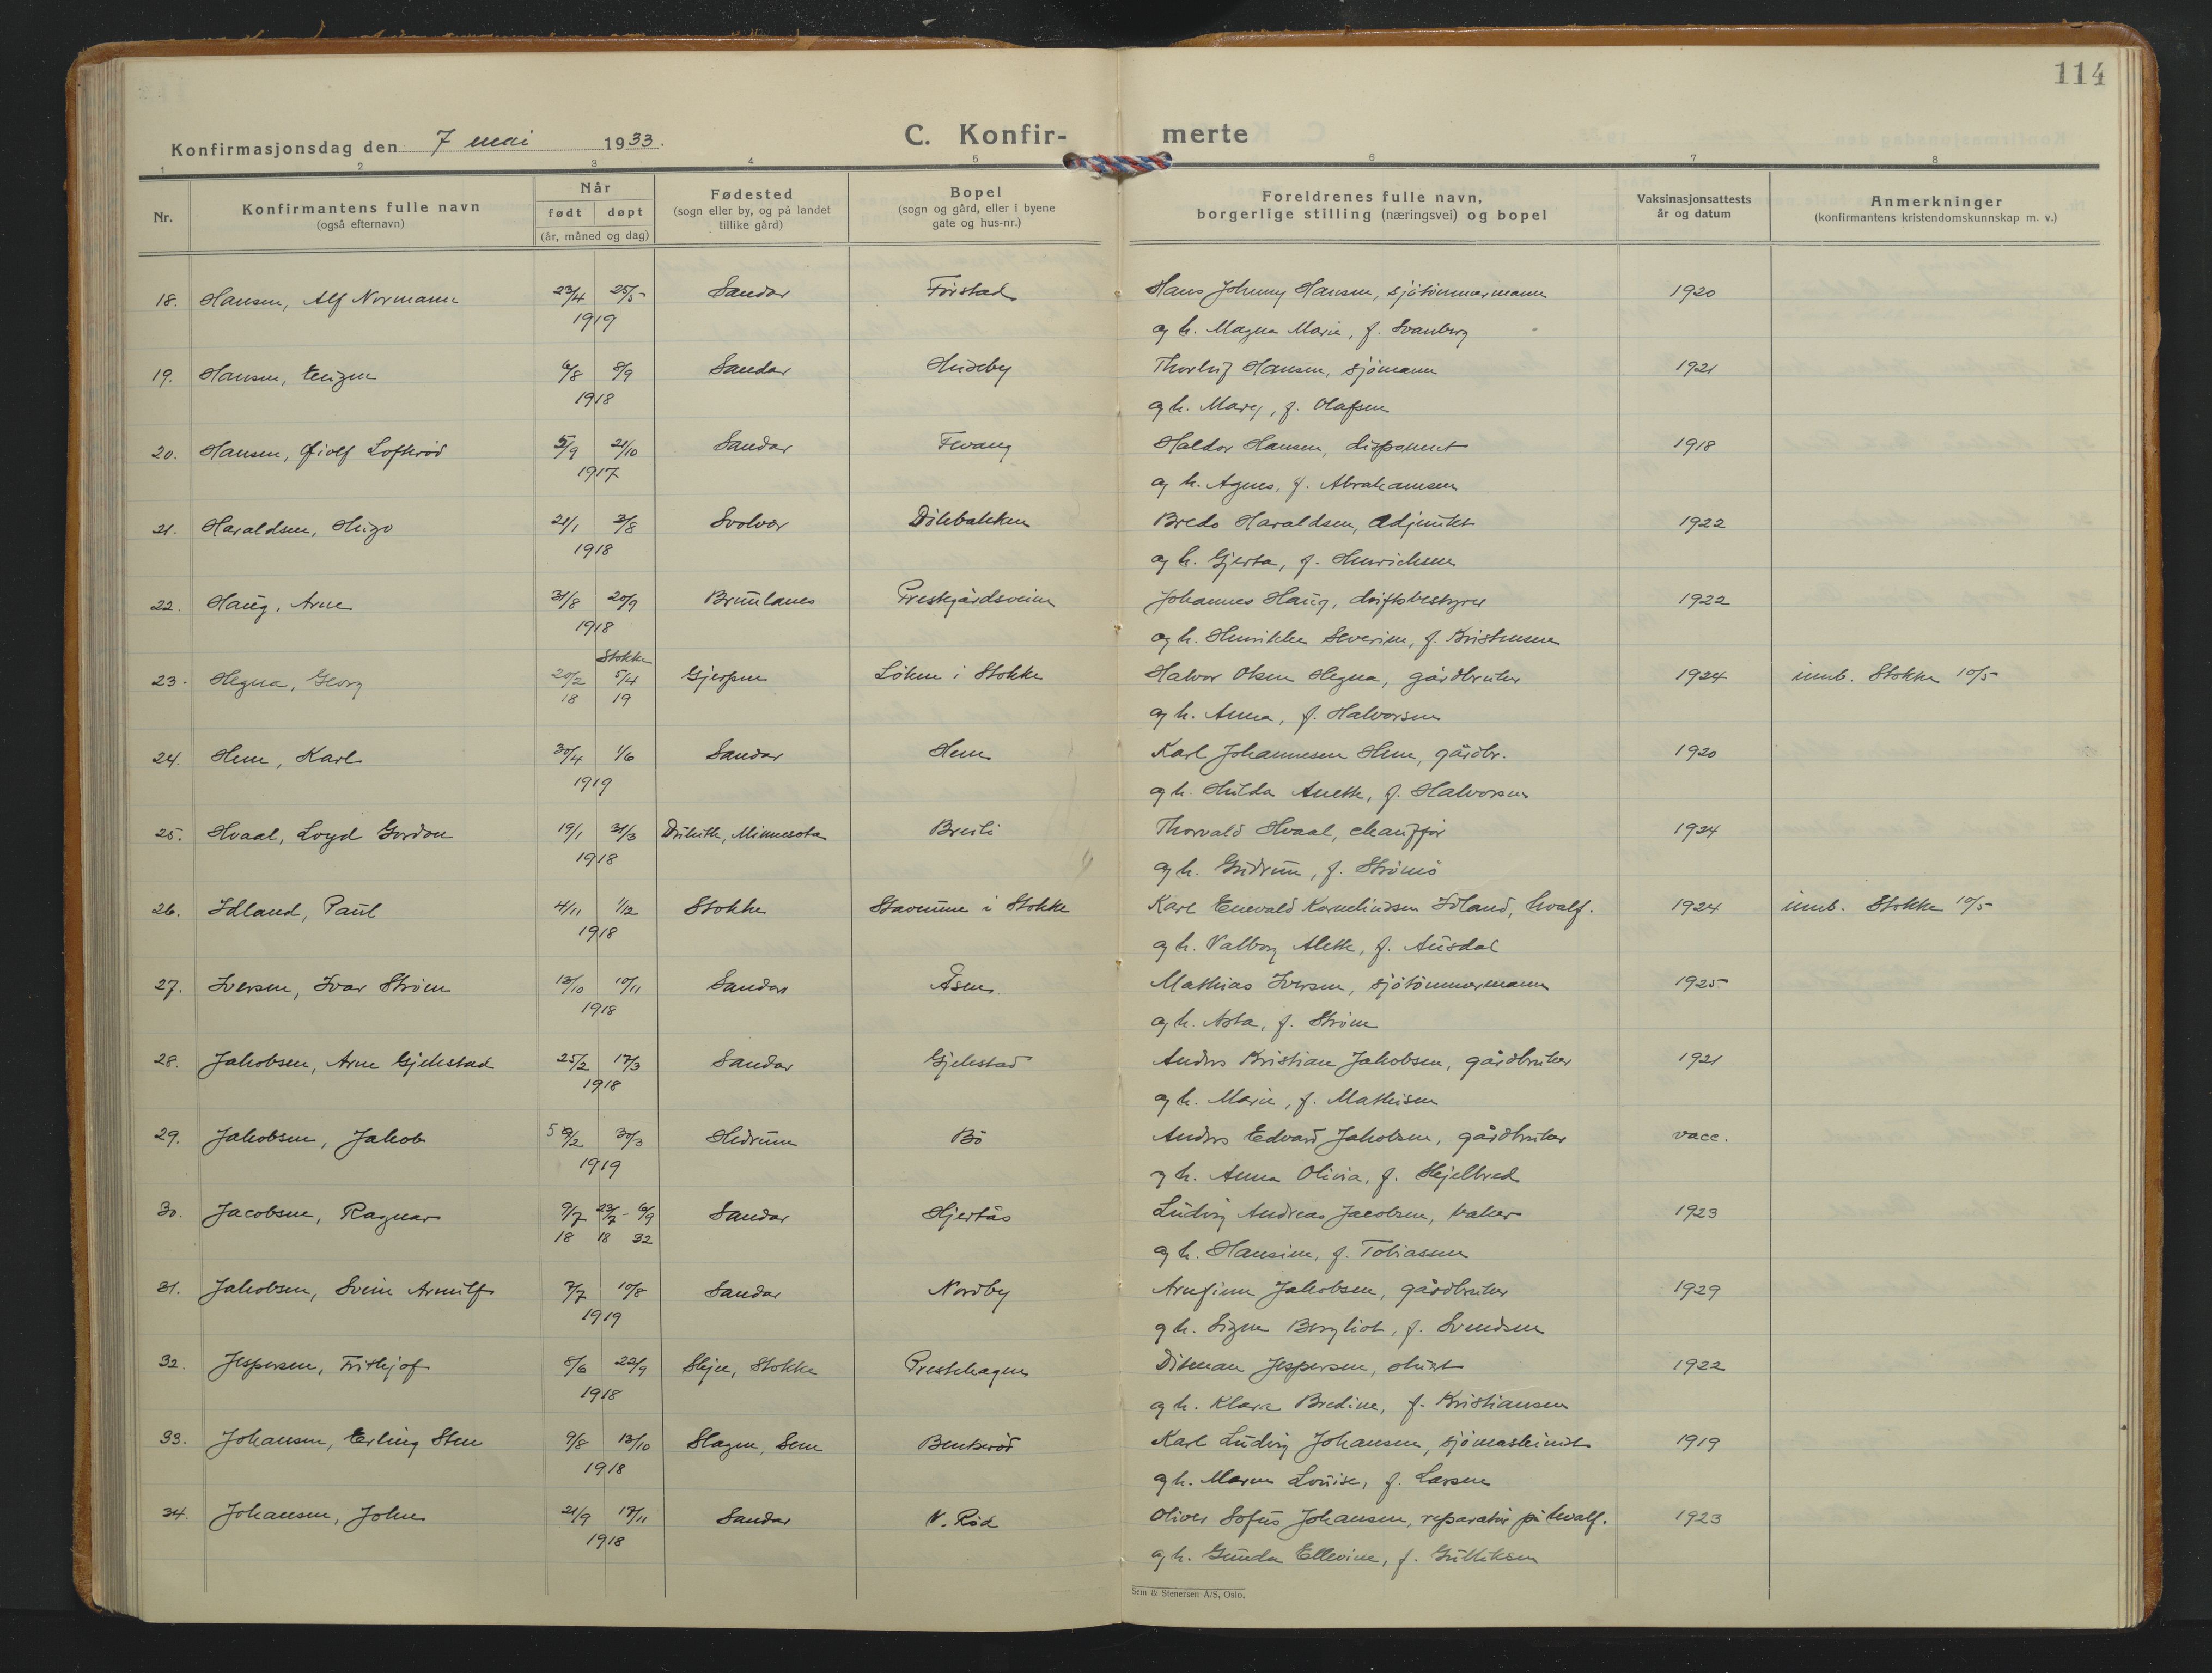 114
Konfirmasjonsdag den 7 mai 1933.
C. Konfir- merte
1 2 3 4 5 6 7 8
Nr.
Konfirmantens fulle navn
(også efternavn)
Når
født døpt
(år, måned og dag)
Fødested
(sogn eller by, og på landet
tillike gård)
Bopel
(sogn og gård, eller i byene
gate og hus-nr.)
Foreldrenes fulle navn,
borgerlige stilling (næringsvei) og bopel
Vaksinasjonsattests
år og datum
Anmerkninger
(konfirmantens kristendomskunnskap m. v.)
18. Hansen, Alf Normann 23/4 25/5 Sandar Førstad Hans Johnny Hansen, sjøtømmermann 1920
1919
og h. Magna Marie, f. Svanberg
19. Hansen, Eugen 6/8 8/9 Sandar Huseby Thorleif Hansen, sjømann 1921
1918
og h. Mary, f. Olafsen
20. Hansen, Loftsrød 5/9 21/10 Sandar Fevang Haldor Hansen, disponent 1918
1917
og h. Agnes, f. Abrahamsen
21. Haraldsen, Hugo 21/1 3/8 Svolvær Dølebakken Bredo Haraldsen, Adjunkt 1922
1918
og h. Gjerta, f. Henrichsen
22. Haug, Arne 31/8 20/9 Brunlanes Prestegårdsveien Johannes Haug, driftsbestyrer 1922
1918
og h. Henrikke Severine, f. Kristensen
Stokke
23. Hegna, Georg 20/2 5/4 Gjerpen Løken i Stokke Halvor Olsen Hegna, gårdbruker 1924 innb. Stokke 10/5
18 19
og h. Anna, f. Halvorsen
24. Hem, Karl 30/4 1/6 Sandar Hem Karl Johannesen Hem, gårdbr. 1920
1919
og h. Hilda Anette, f. Halvorsen
25. Hvaal, Loyd Gordon 19/1 31/3 Duluth, Minnesota Breili Thorvald Hvaal, chauffør 1924
1918
og h. Gudrun, f. Strømø
26. Idland, Paul 4/11 1/12 Stokke Stavnum i Stokke Karl Enevald Korneliussen Idland, hvalf. 1924 innb. Stokke 10/5
1918
og h. Valborg Alette, f. Ausdal
27. Iversen, Ivar Strøm 13/10 10/11 Sandar Åsen Mathias Iversen, sjøtømmermann 1925
1918
og h. Asta, f. Strøm
28. Jakobsen, Arne Gjekstad 25/2 17/3 Sandar Gjekstad Anders Kristian Jakobsen, gårdbruker 1921
1918
og h. Marie, f. Mathisen
29. Jakobsen, Jakob 5/2 30/3 Hedrum Bø Anders Edvard Jakobsen, gårdbruker vacc.
1919
og h. Anna Olivia, f. Skjelbred
30. Jacobsen, Ragnar 9/7 23/7 - 6/9 Sandar Hjertås Ludvig Andreas Jacobsen, baker 1923
18 18 32
og h. Hansine, f. Tobiassen
31. Jakobsen, Svein Arnulf 7/7 10/8 Sandar Nordby Arnfinn Jakobsen, gårdbruker 1929
1919
og h. Signe Bergliot, f. Svendsen
32. Jespersen, Frithjof 8/6 22/9 Skjee, Stokke Prestehagen Ditman Jespersen, 1922
1918
og h. Klara Bredine, f. Kristiansen
33. Johansen, Erling Sten 9/8 13/10 Slagen, Sem Bentserød Karl Ludvig Johansen, sjømaskinist 1919
1918
og h. Maren Louise, f. Larsen
34. Johansen, John 21/9 17/11 Sandar N. Rød Oliver Sofus Johansen, reparatør på hvalf. 1923
1918
og h. Gunda Ellevine, f. Gulliksen
Sem & Stenersen A/S, Oslo.